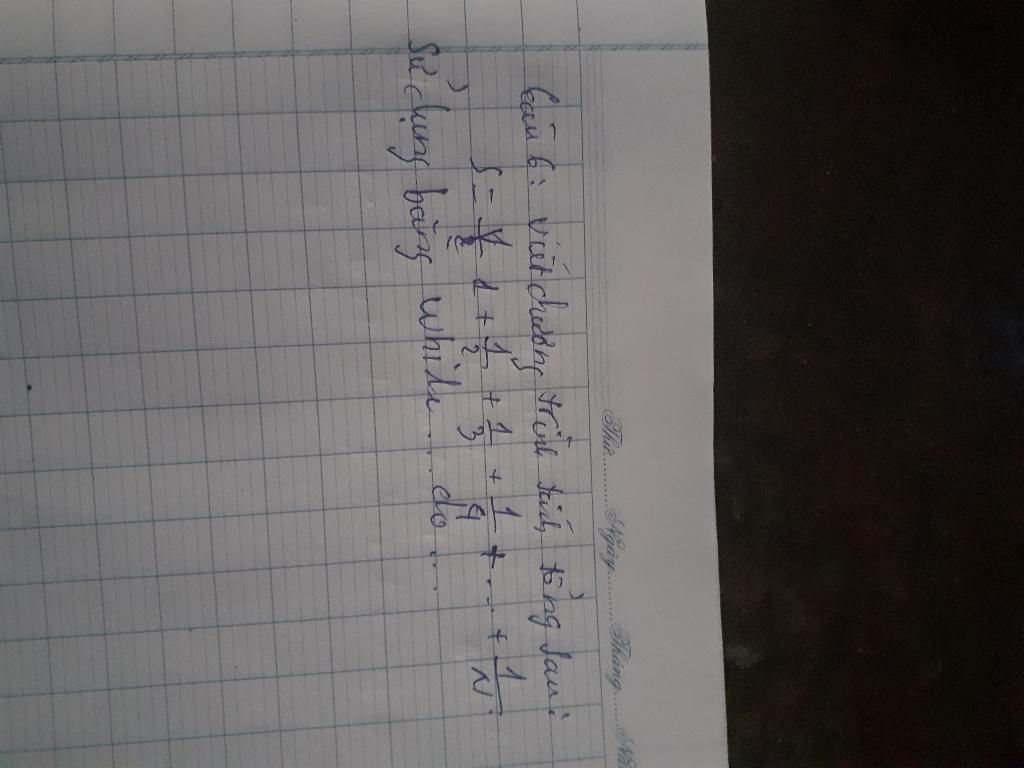 Thứ......... Ngày......... Tháng.........Năm
Câu 6: Viết chương trình tính tổng sau:
S = 1 + 1/2 + 1/3 + 1/4 + ... + 1/N
Sử dụng bằng While ... do ...